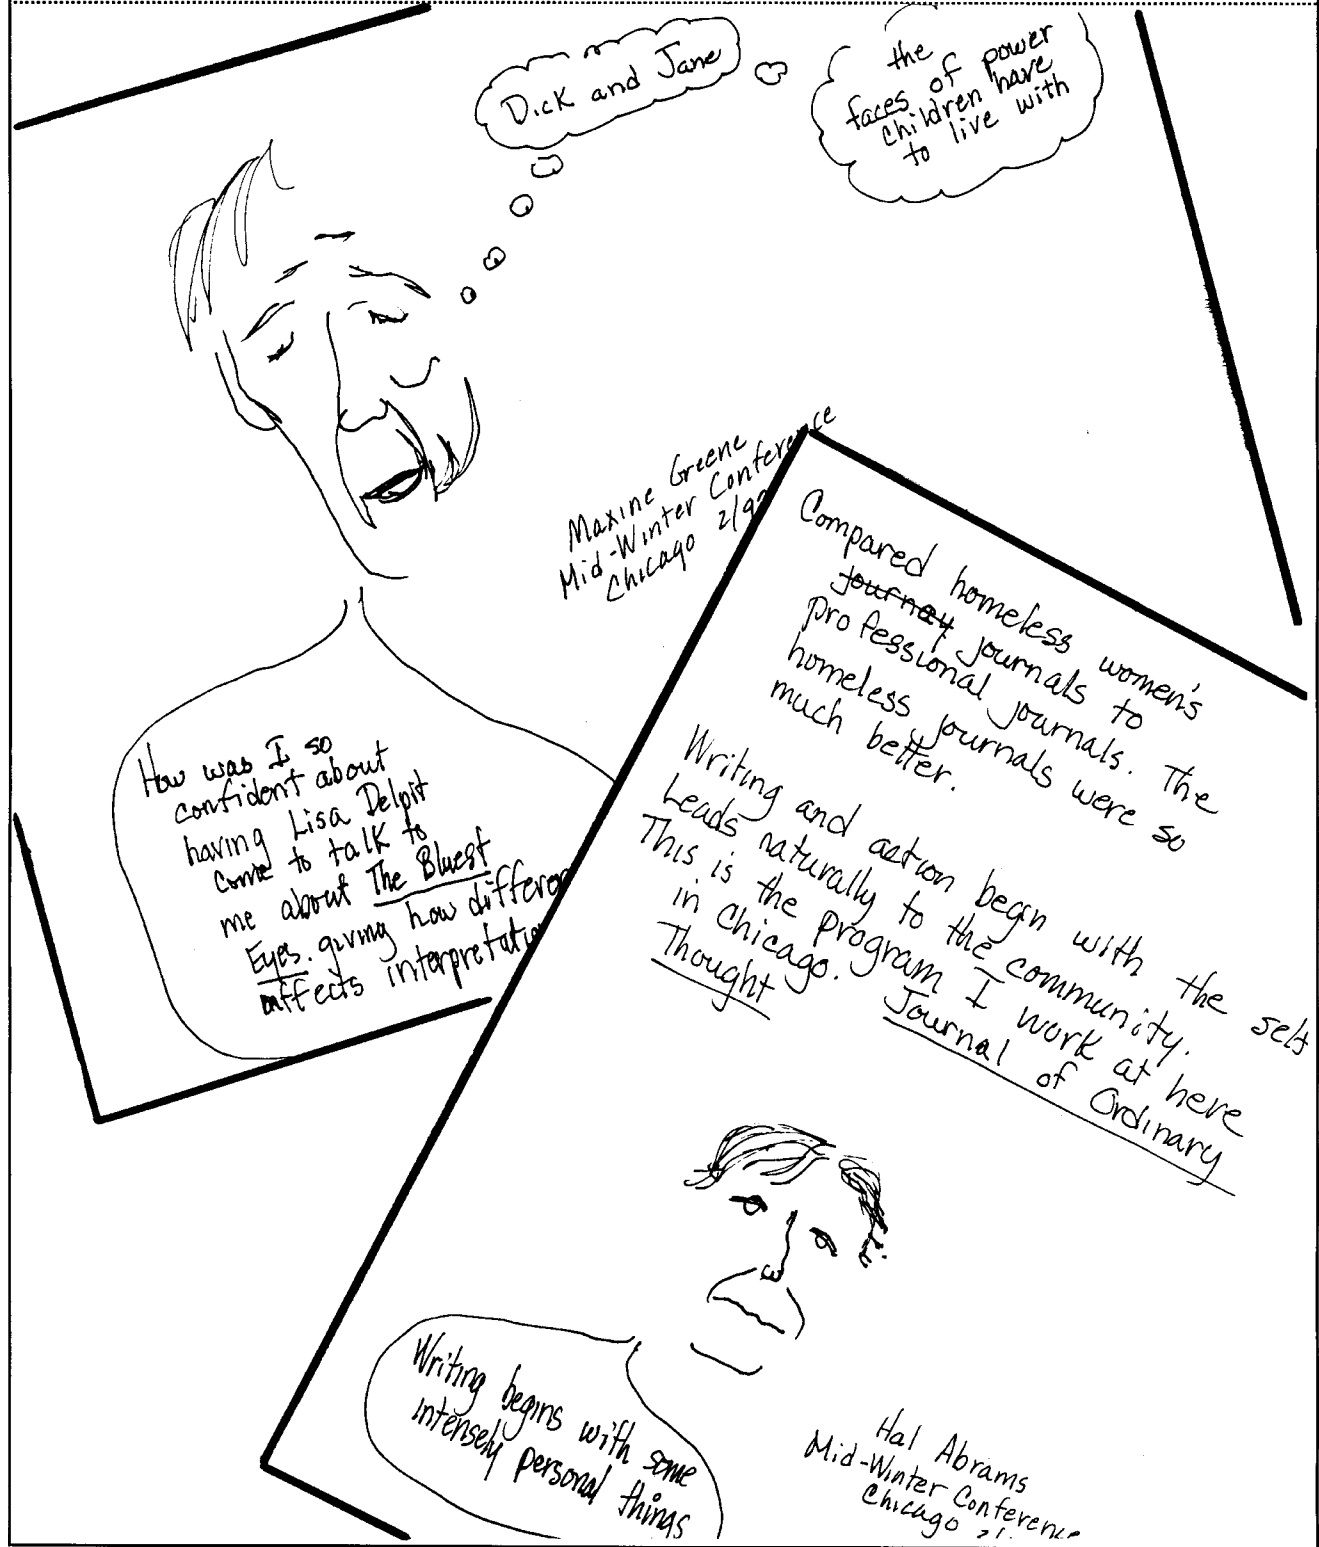 Dick and Jane
the
faces of power
children have
to live with
Maxine Greene
Mid-Winter Conference
Chicago 2/9
How was I so
confident about
having Lisa Delpit
come to talk to
me about The Bluest
Eyes. giving how
affects
Compared homeless women's
journals to
professional journals. The
homeless journals were so
much better.
Writing and action begin with the self
Leads naturally to the community.
This is the program I work at here
in Chicago. Journal of Ordinary
Thought
Writing begins with some
intensely personal things
Hal Abrams
Mid-Winter Conference
Chicago